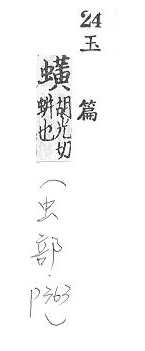 24 玉篇
蟥
胡光切
蛢也
(虫部.p363)